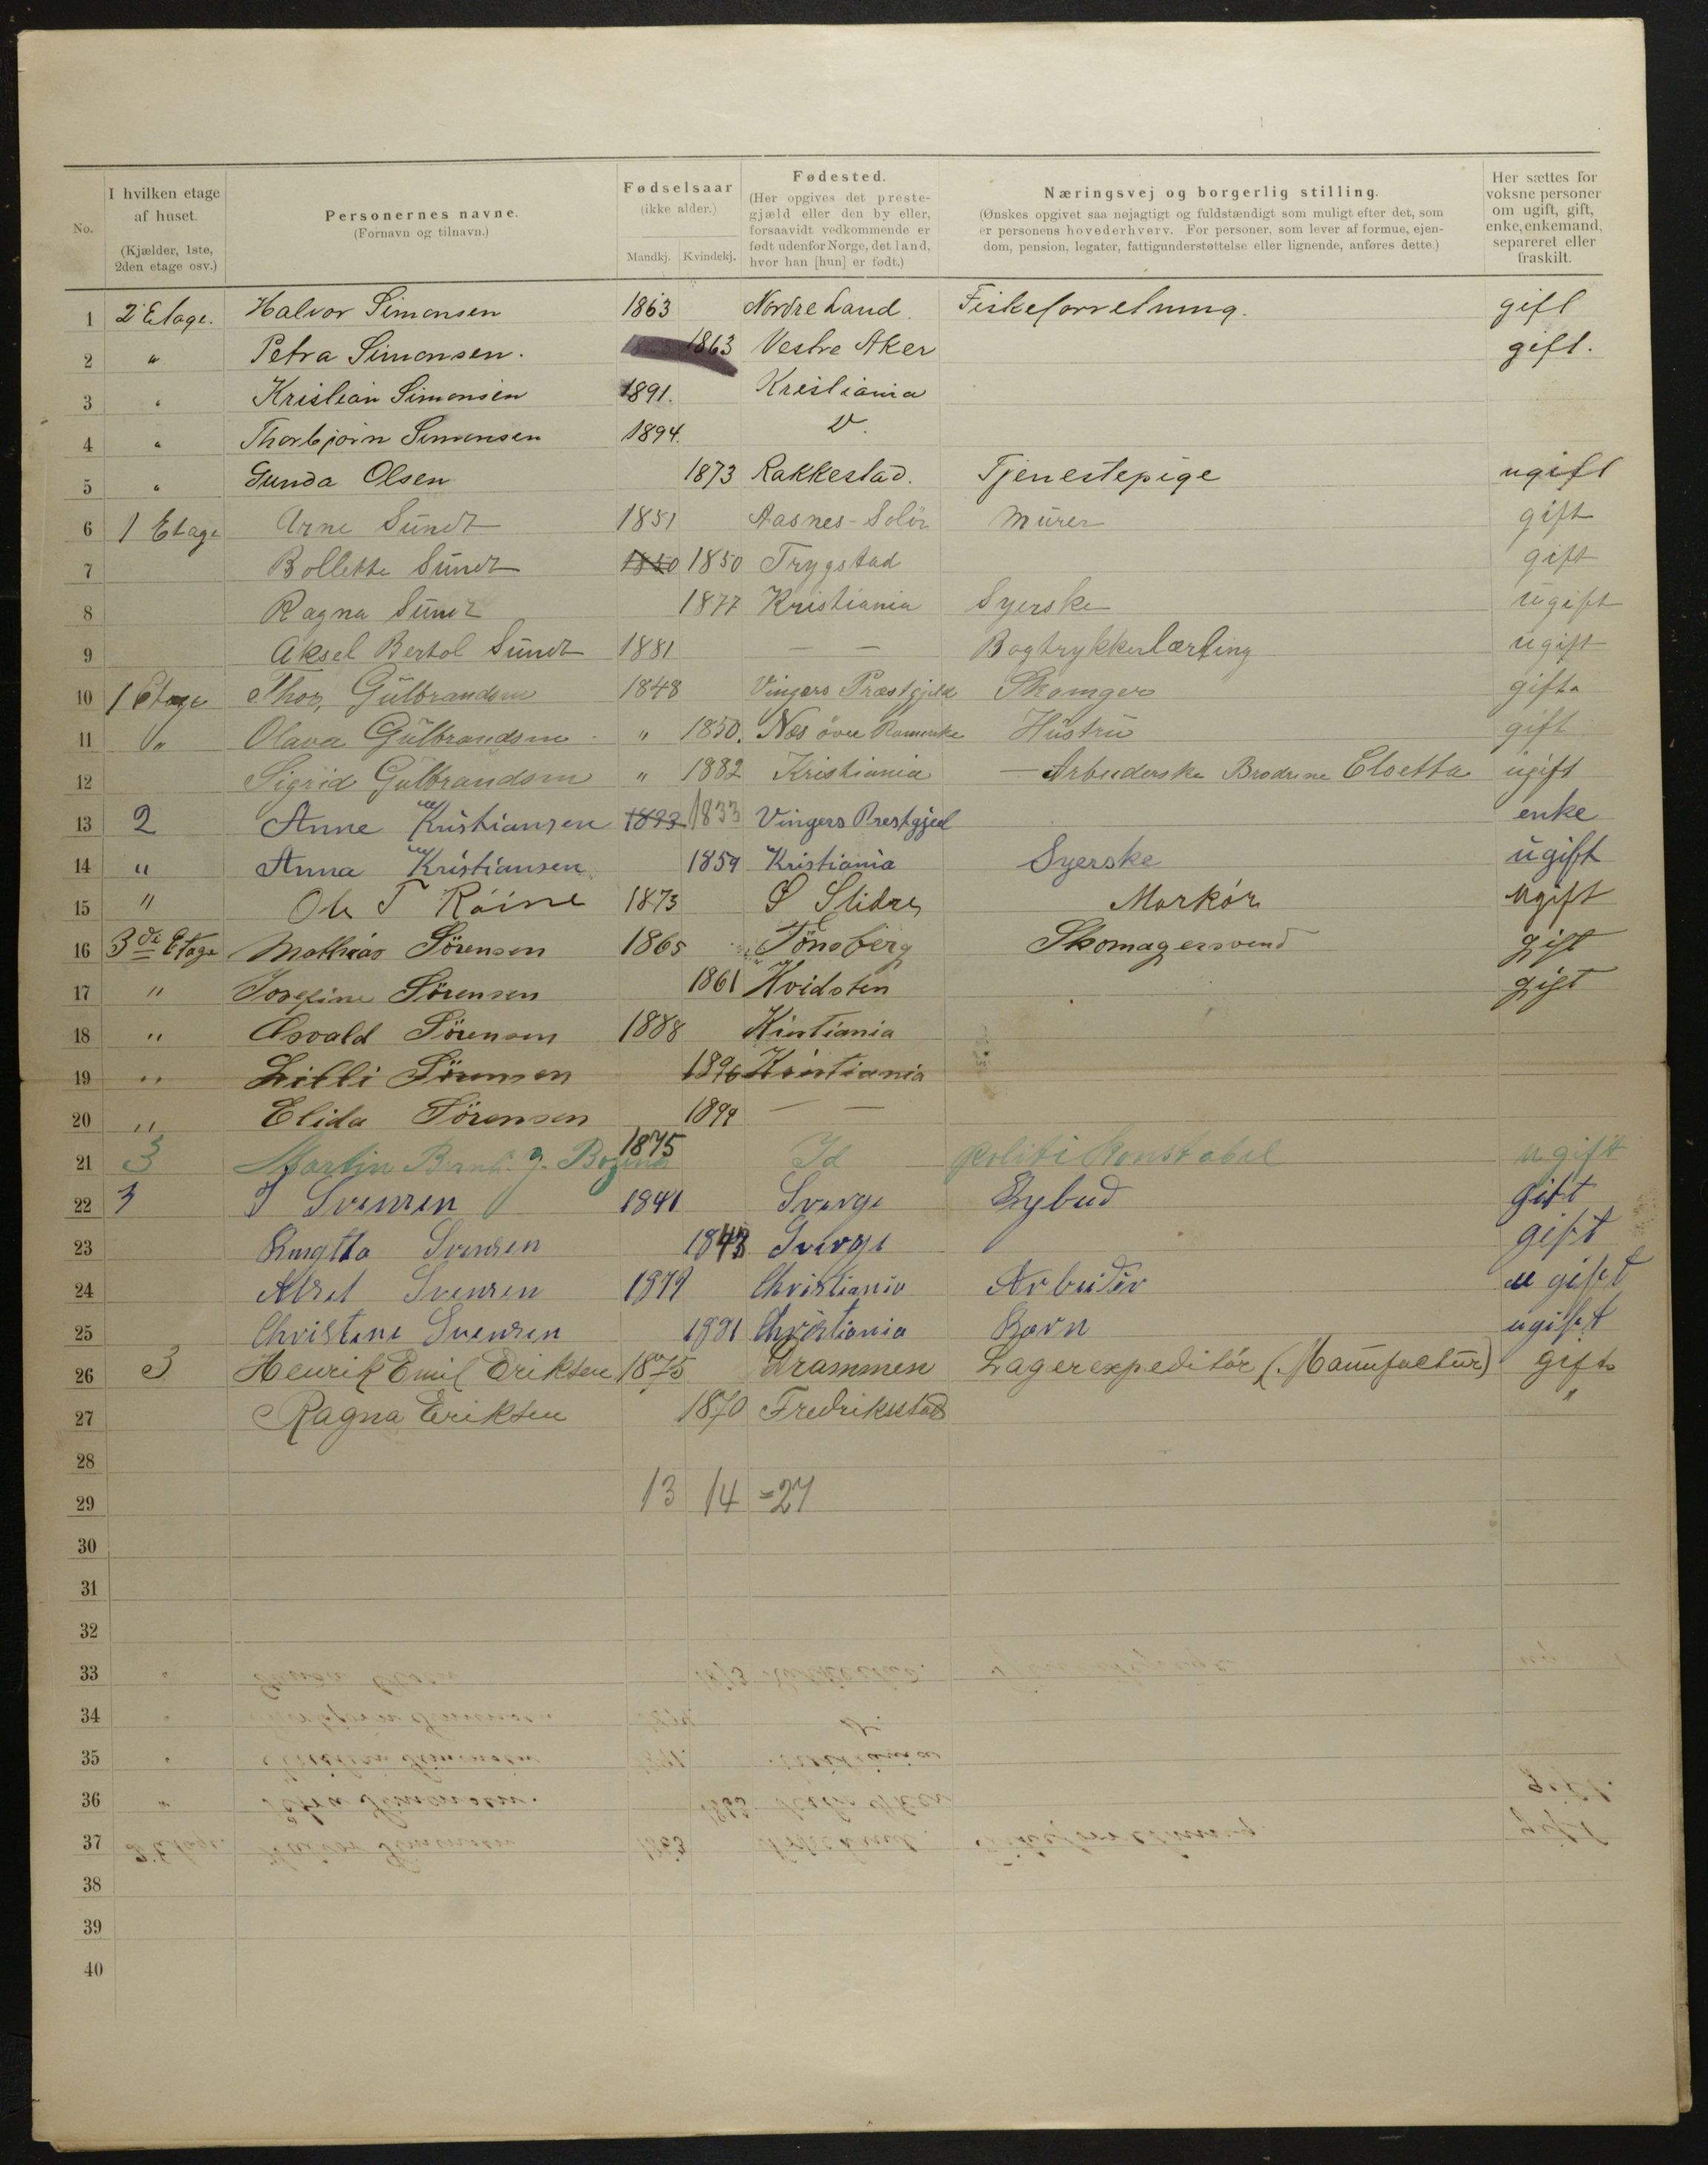 No.
I hvilken etage af huset. (Kjælder, 1ste, 2den etage osv.)
Personernes navne. (Fornavn og tilnavn.)
Fødselsaar (ikke alder.) Mandkj. Kvindekj.
Fødested. (Her opgives det prestegjæld eller den by eller, forsaavidt vedkommende er født udenfor Norge, det land, hvor han [hun] er født.)
Næringsvej og borgerlig stilling. (Ønskes opgivet saa nøjagtigt og fuldstændigt som muligt efter det, som er personens hovederhverv. For personer, som lever af formue, ejendom, pension, legater, fattigunderstøttelse eller lignende, anføres dette.)
Her sættes for voksne personer om ugift, gift, enke, enkemand, separeret eller fraskilt.
1 2 Etage. Halvor Simonsen 1863 Nordre Land. Fiskeforretning. gift
2 " Petra Simonsen. 1863 Vestre Aker gift.
3 " Kristian Simonsen 1891. Kristiania
4 " Thorbjørn Simonsen 1894.
5 " Gunda Olsen 1873 Rakkestad. Tjenestepige ugift
6 1 Etage Arne Sundt 1851 Aasnes-Solör Murer gift
7 Bollette Sundt 1850 1850 Trygstad gift
8 Ragna Sundt 1877 Kristiania Syerske ugift
9 Aksel Bertol Sundt 1881 — — Bogtrykkerlærling ugift
10 1 Etage Thor, Gulbrandsen 1848 Vingers Præstgjeld gift
11 " Olava Gulbrandsen " 1850. Nes övre Romerike Hustru gift
12 Sigrid Gulbrandsen " 1882 Kristiania — Arbeiderske Brodrene Cloetta ugift
13 2 Anne Kristiansen 1833 1833 Vingers Prestgjed enke
14 " Anna Kristiansen 1859 Kristiania Syerske ugift
15 " Ole T 1873 S Slidre Markör ugift
16 3de Etage Mathias Sörensen 1865 Tönsberg Skomagersvend gift
17 " Josefine Sörensen 1861 Hvidsten gift
18 " Osvald Sörensen 1888 Kristiania
19 " Lilli Sörensen 1896 Kristiania
20 " Elida Sörensen 1899 — —
21 3 Martin Bernh. J. 1875 Id Politi Konstabel ugift
22 3 Svensen 1841 Sverge Bybud gift
23 Svensen 1843 Sverge gift
24 Svensen 1879 Christiania Arbeider ugift
25 Christine Svensen 1881 Christiania Barn ugift
26 3 Henrik Emil Eriksen 1875 Drammen Lagerexpeditör (Manufactur) gift
27 Ragna Eriksen 1870 Fredriksstad "
28
29 13 14 =27
30
31
32
33
34
35
36
37
38
39
40